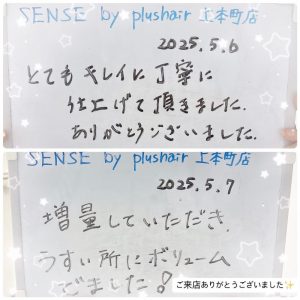 SENSE by plushair 上本町店
2025.5.6
とてもキレイに丁寧に
仕上げて頂きました.
ありがとうございました.
SENSE by plushair 上本町店
2025.5.7
増量していただき.
うすい所にボリューム
でました!
ご来店ありがとうございました✨